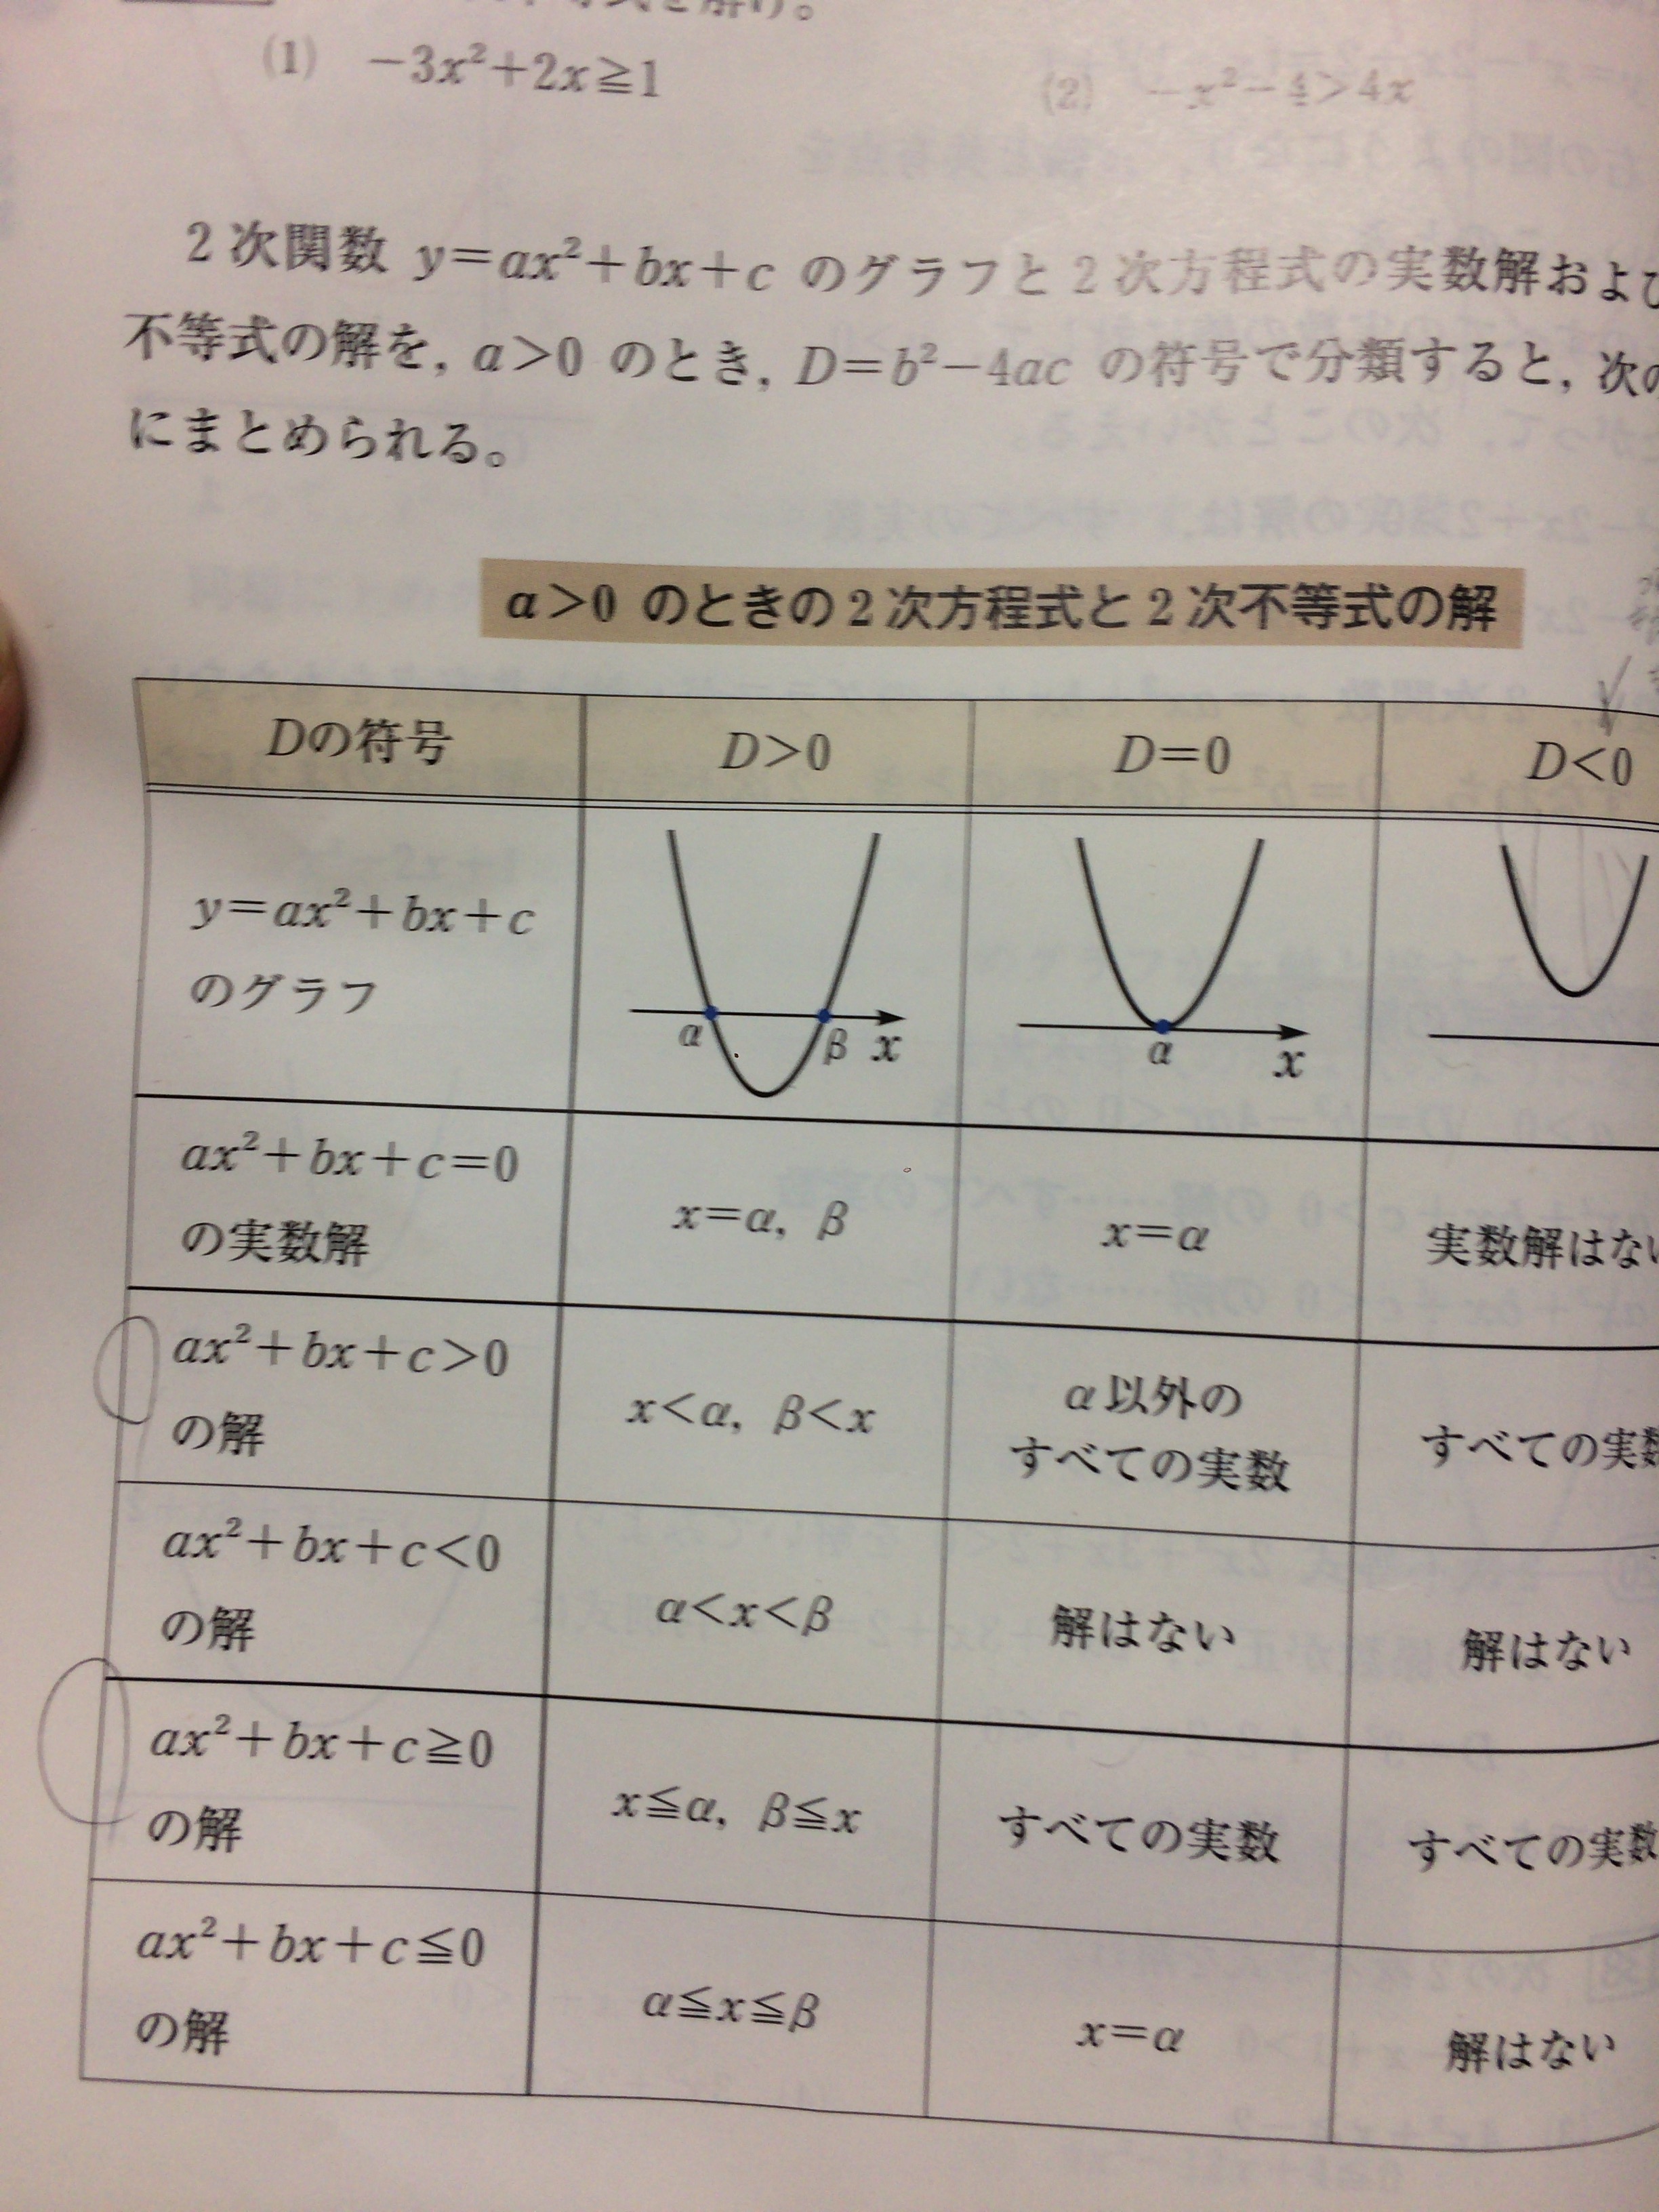 (1) −3x²+2x≧1
(2) −x²−4>4x
2次関数 y=ax²+bx+c のグラフと2次方程式の実数解およ
不等式の解を, a>0 のとき, D=b²−4ac の符号で分類すると, 次の
にまとめられる。
a>0 のときの2次方程式と2次不等式の解
Dの符号 D>0 D=0 D<0
y=ax²+bx+c
のグラフ
α β x
α x
ax²+bx+c=0
の実数解
x=α, β
x=α
実数解はない
ax²+bx+c>0
の解
x<α, β<x
α以外の
すべての実数
すべての実数
ax²+bx+c<0
の解
α<x<β
解はない
解はない
ax²+bx+c≧0
の解
x≦α, β≦x
すべての実数
すべての実数
ax²+bx+c≦0
の解
α≦x≦β
x=α
解はない